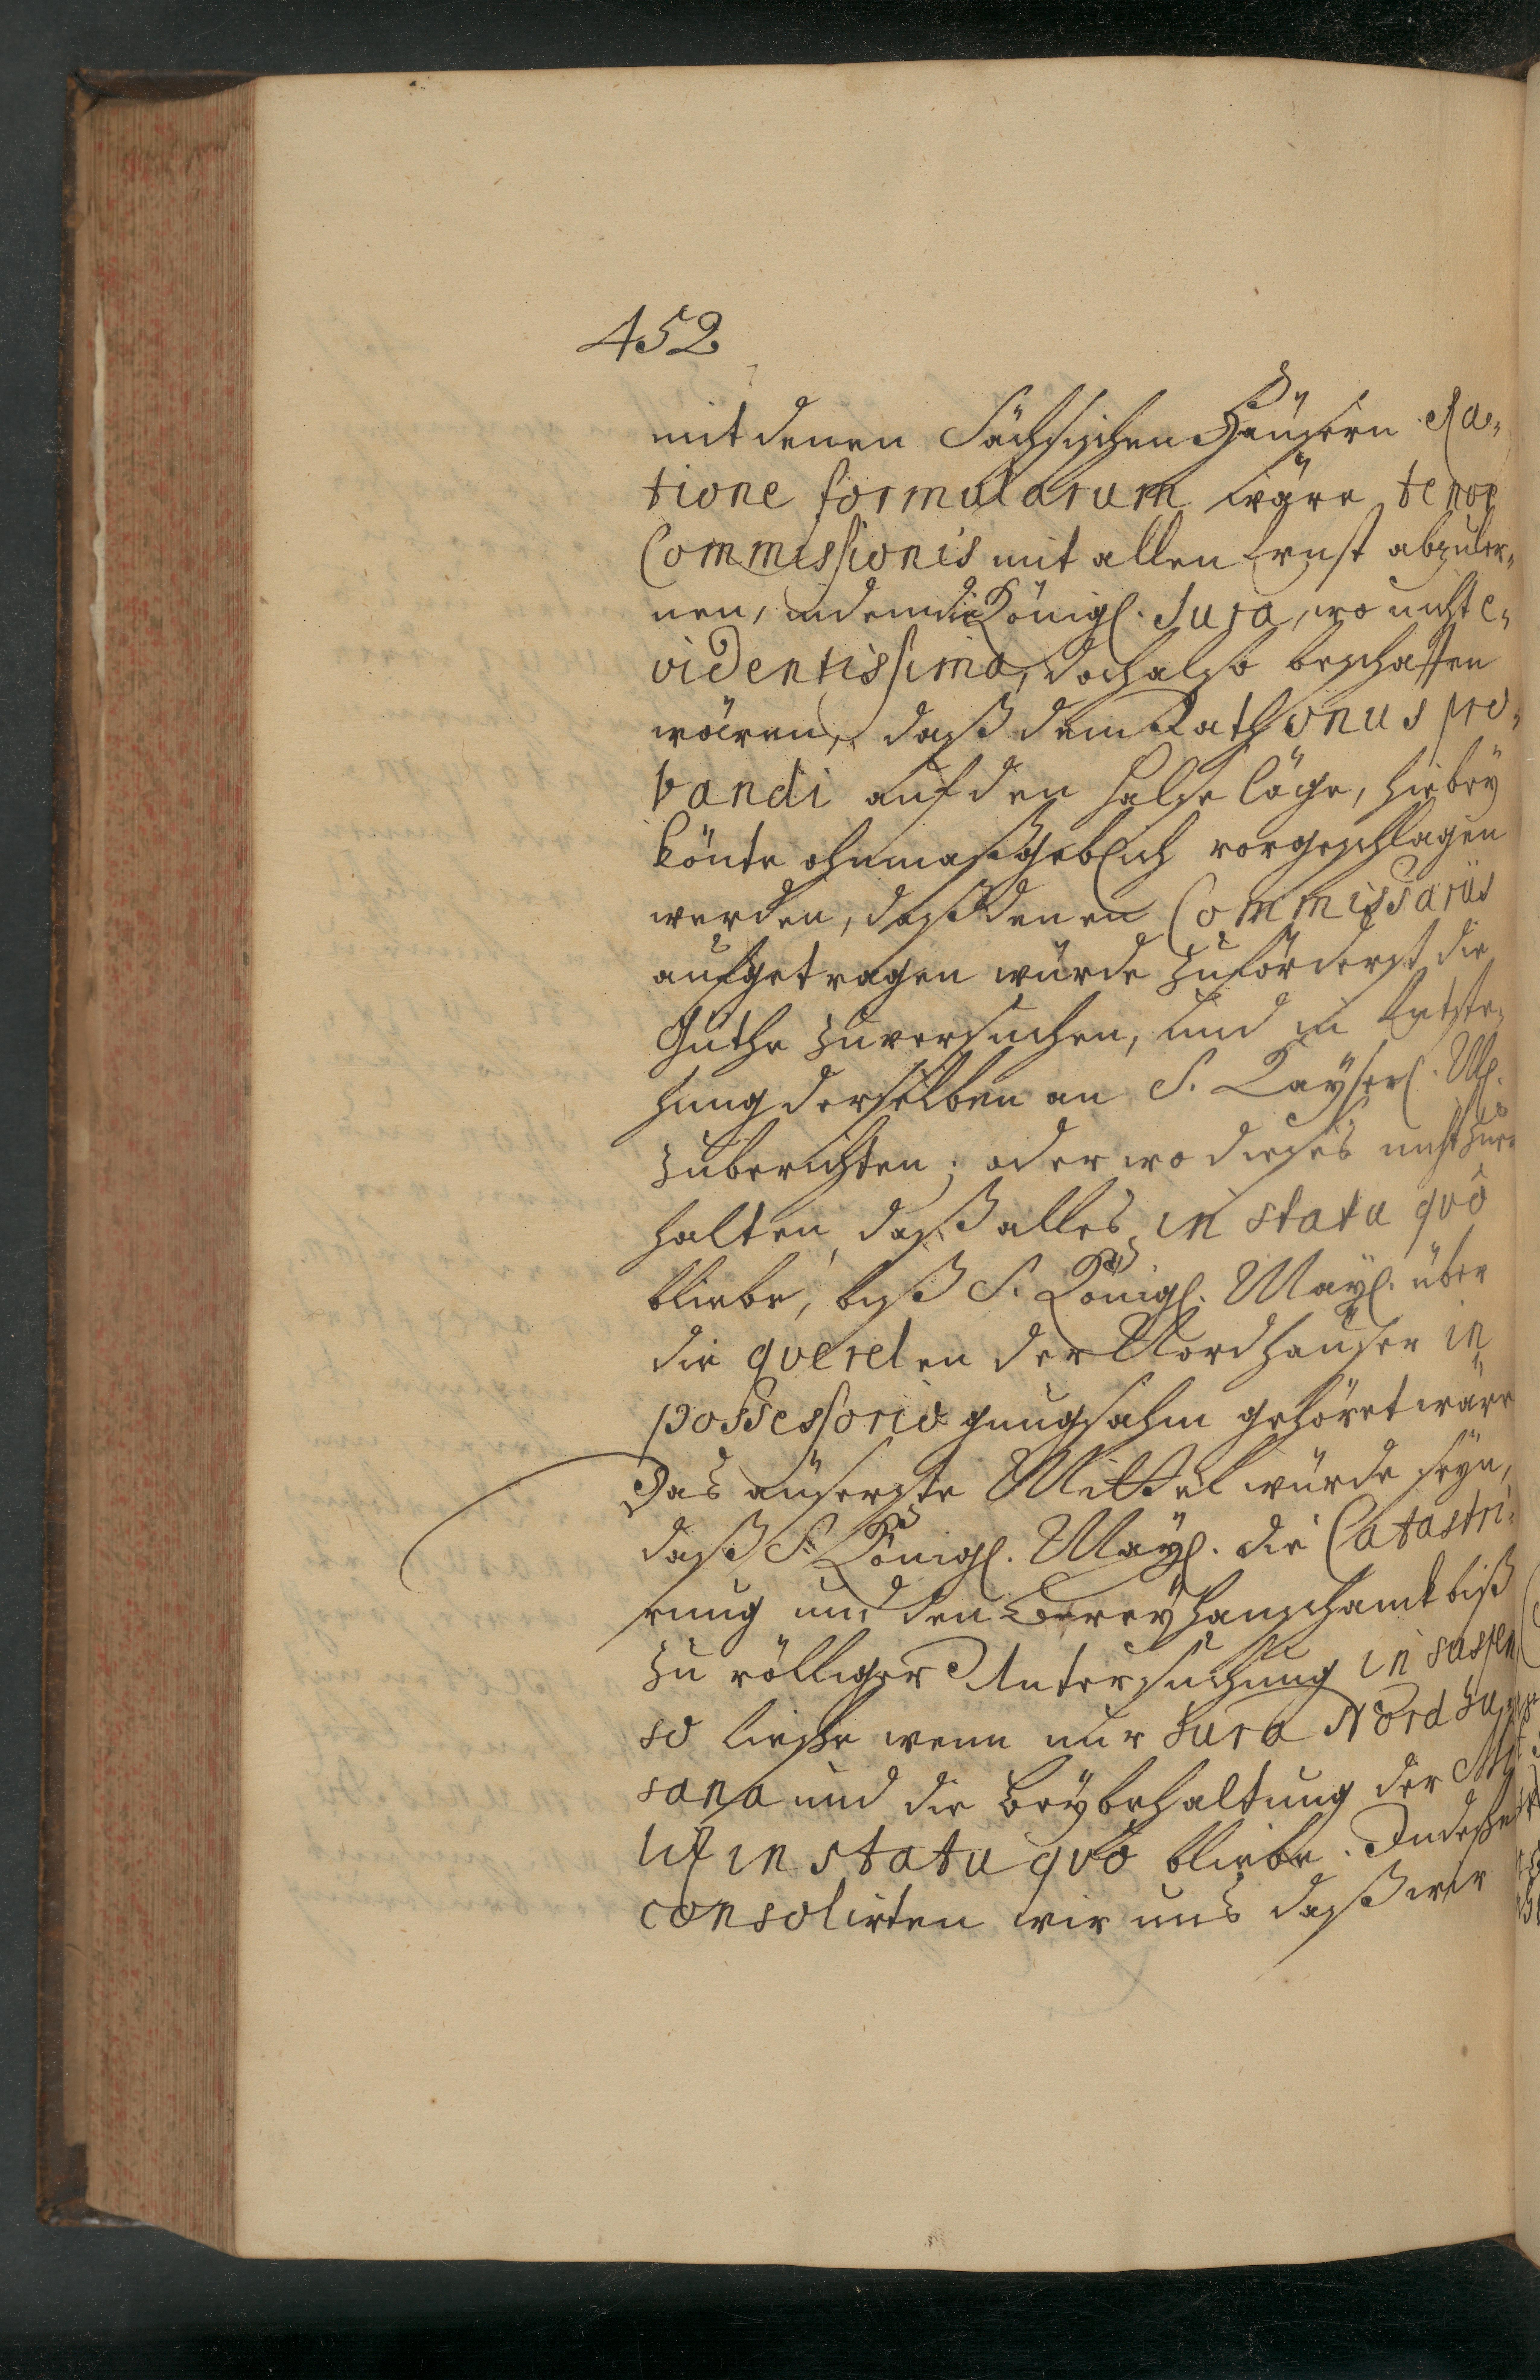 452
mit denen Sächsischen Häusern Ra-
tione formularum wäre, tenor
Commissionis mit allen Ernst abzuleh-
nen, indem die Königl. Jura, wo nicht e-
videntissima, doch also beschaffen
wären, daß dem Rath onus pro-
bandi auf den Halse läge, hiebey
könte ohnmaßgeblich vorgeschlagen
werden, daß denen Commissariis
aufgetragen würde zuförderst die
Güthe zuversuchen, und in Entste-
hung derselben an S. Kayserl. M.
zuberichten; oder wo dieses nicht zuer
halten, daß alles in statu quô
bliebe, biß S. Königl. Mayl. über
die querelen der Nordhäuser in
possessorio gnugsahm gehöret wäre
Das äuserste Mittel würde seyn,
daß S. Königl. Mayl. die Catastri-
rung und den Breyhanschank biß
zu völliger Untersuchung in suspen
so ließe wenn nur Jura Nordhu
sana und die Beybehaltung der
in statu quô bliebe. Indeße
consolirten wir uns daß wir